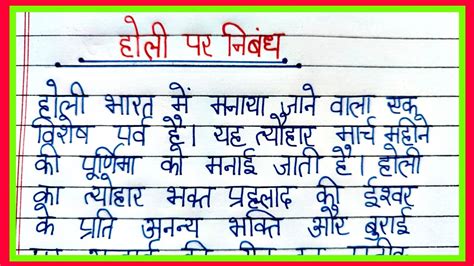 होली पर निबंध
होली भारत में मनाया जाने वाला एक
विशेष पर्व है। यह त्यौहार मार्च महीने
की पूर्णिमा को मनाई जाती है। होली
का त्योहार भक्त प्रहलाद की ईश्वर
के प्रति अनन्य भक्ति और बुराई